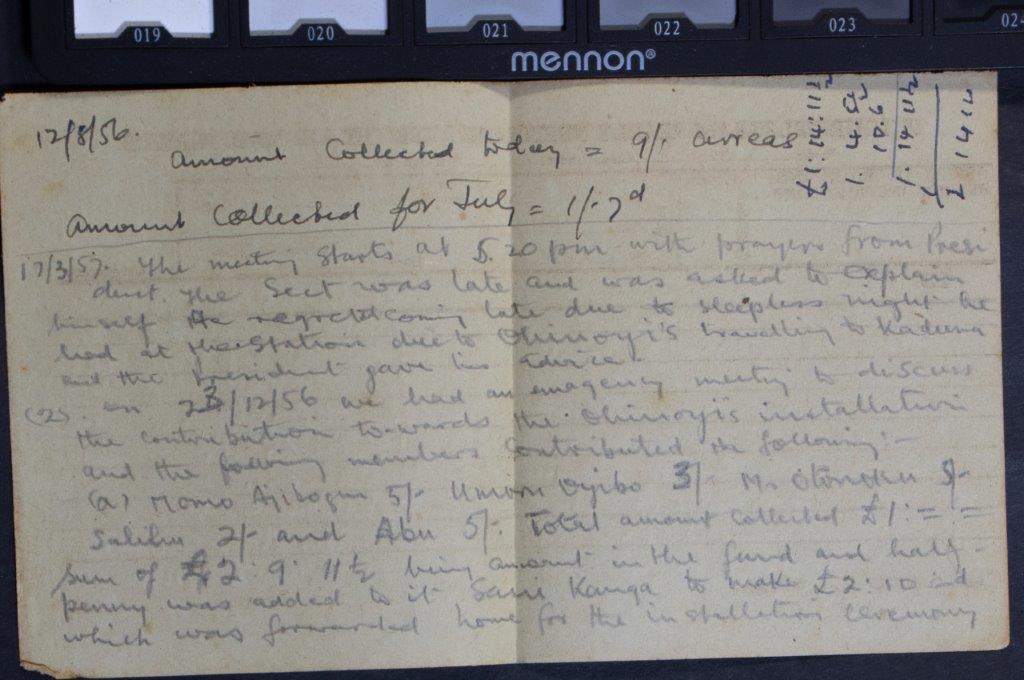 019 020 021 022 023 024
mennon®
12/8/56.
Amount Collected today = 9/. arreas
Amount Collected for July = 1/. 7d
£1:14:11½
1. 4. 5½
10. 6
1. 14 11½
£ 14 11
17/3/57. The meeting starts at 5.20 pm with prayers from Presi
dent. The Sect was late and was asked to explain
himself He regretted coming late due to sleepless night he
had at the Station due to Ohinoyi's travelling to Kaduna
and the President gave his advice.
(2) on 23/12/56 we had an emagency meeting to discuss
the contribution towards the Ohinoyi's installation
and the following members contributed the following:-
(a) Momo Ajibogun 5/- Umoru Oyibo 3/- M. Otonoku 5/-
Salihu 2/- and Abu 5/- Total amount collected £1:=:=
Sum of £2:9:11½ being amount in the fund and half-
penny was added to it Sani Kanga to make £2:10 and
which was forwarded home for the installation ceremony